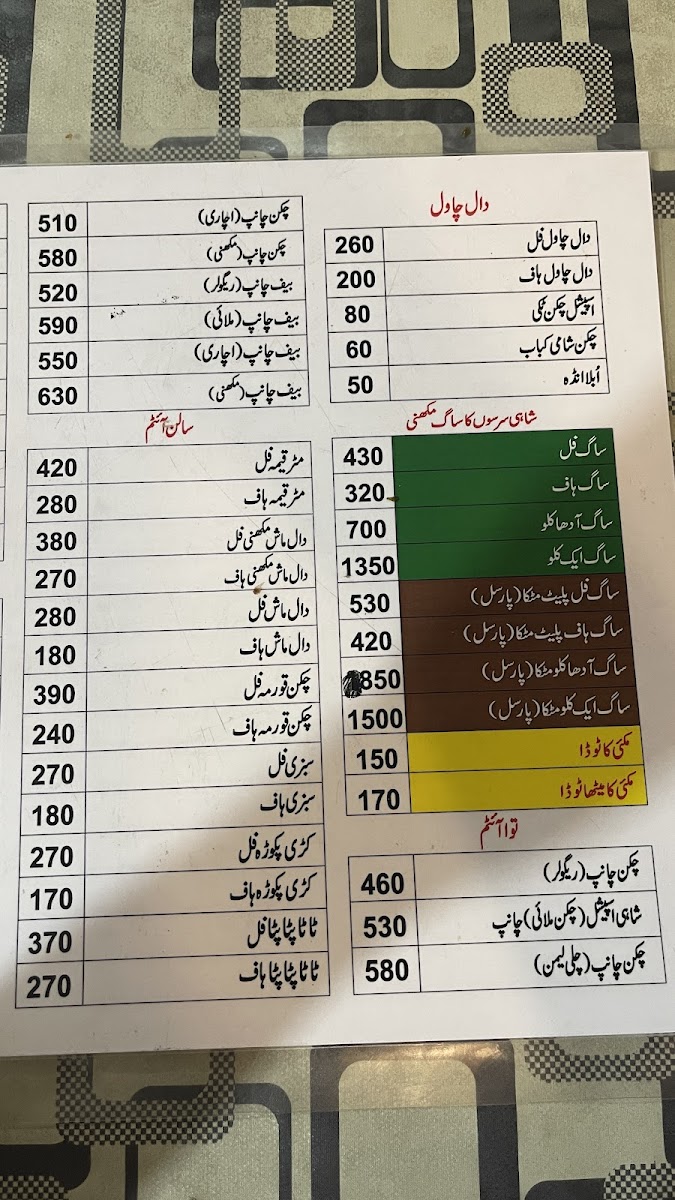 دال چاول
دال چاول فل 260
دال چاول ہاف 200
اسپیشل چکن ٹکی 80
چکن شامی کباب 60
اُبلا انڈہ 50
شاہی سرسوں کا ساگ مکھنی
ساگ فل 430
ساگ ہاف 320
ساگ آدھا کلو 700
ساگ ایک کلو 1350
ساگ فل پلیٹ مٹکا (پارسل) 530
ساگ ہاف پلیٹ مٹکا (پارسل) 420
ساگ آدھا کلو مٹکا (پارسل) 850
ساگ ایک کلو مٹکا (پارسل) 1500
مکئی کا ٹوڈا 150
مکئی کا میٹھا ٹوڈا 170
توا آئٹم
چکن چانپ (ریگولر) 460
شاہی اسپیشل (چکن ملائی) چانپ 530
چکن چانپ (چلی لیمن) 580
چکن چانپ (اچاری) 510
چکن چانپ (مکھنی) 580
بیف چانپ (ریگولر) 520
بیف چانپ (ملائی) 590
بیف چانپ (اچاری) 550
بیف چانپ (مکھنی) 630
سالن آئٹم
مٹر قیمہ فل 420
مٹر قیمہ ہاف 280
دال ماش مکھنی فل 380
دال ماش مکھنی ہاف 270
دال ماش فل 280
دال ماش ہاف 180
چکن قورمہ فل 390
چکن قورمہ ہاف 240
سبزی فل 270
سبزی ہاف 180
کڑی پکوڑہ فل 270
کڑی پکوڑہ ہاف 170
ٹاٹا پٹا پٹا فل 370
ٹاٹا پٹا پٹا ہاف 270